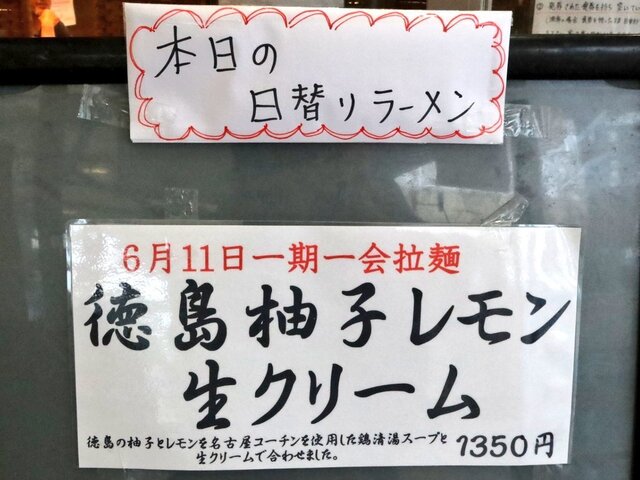 本日の
日替りラーメン
6月11日一期一会拉麺
徳島柚子レモン
生クリーム
徳島の柚子とレモンを名古屋コーチンを使用した鶏清湯スープと
生クリームで合わせました。
1350円